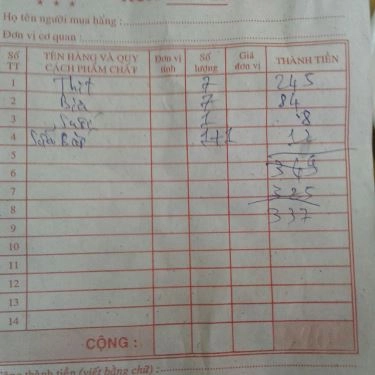 Họ tên người mua hàng :
Đơn vị cơ quan :
Số TT TÊN HÀNG VÀ QUY CÁCH PHẨM CHẤT Đơn vị tính Số lượng Giá đơn vị THÀNH TIỀN
1 Thịt 7 245
2 Bia 7 84
3 1 8
4 1+1 12
5
6 349
7 325
8 337
9
10
11
12
13
14
CỘNG :
thành tiền (viết bằng chữ) :